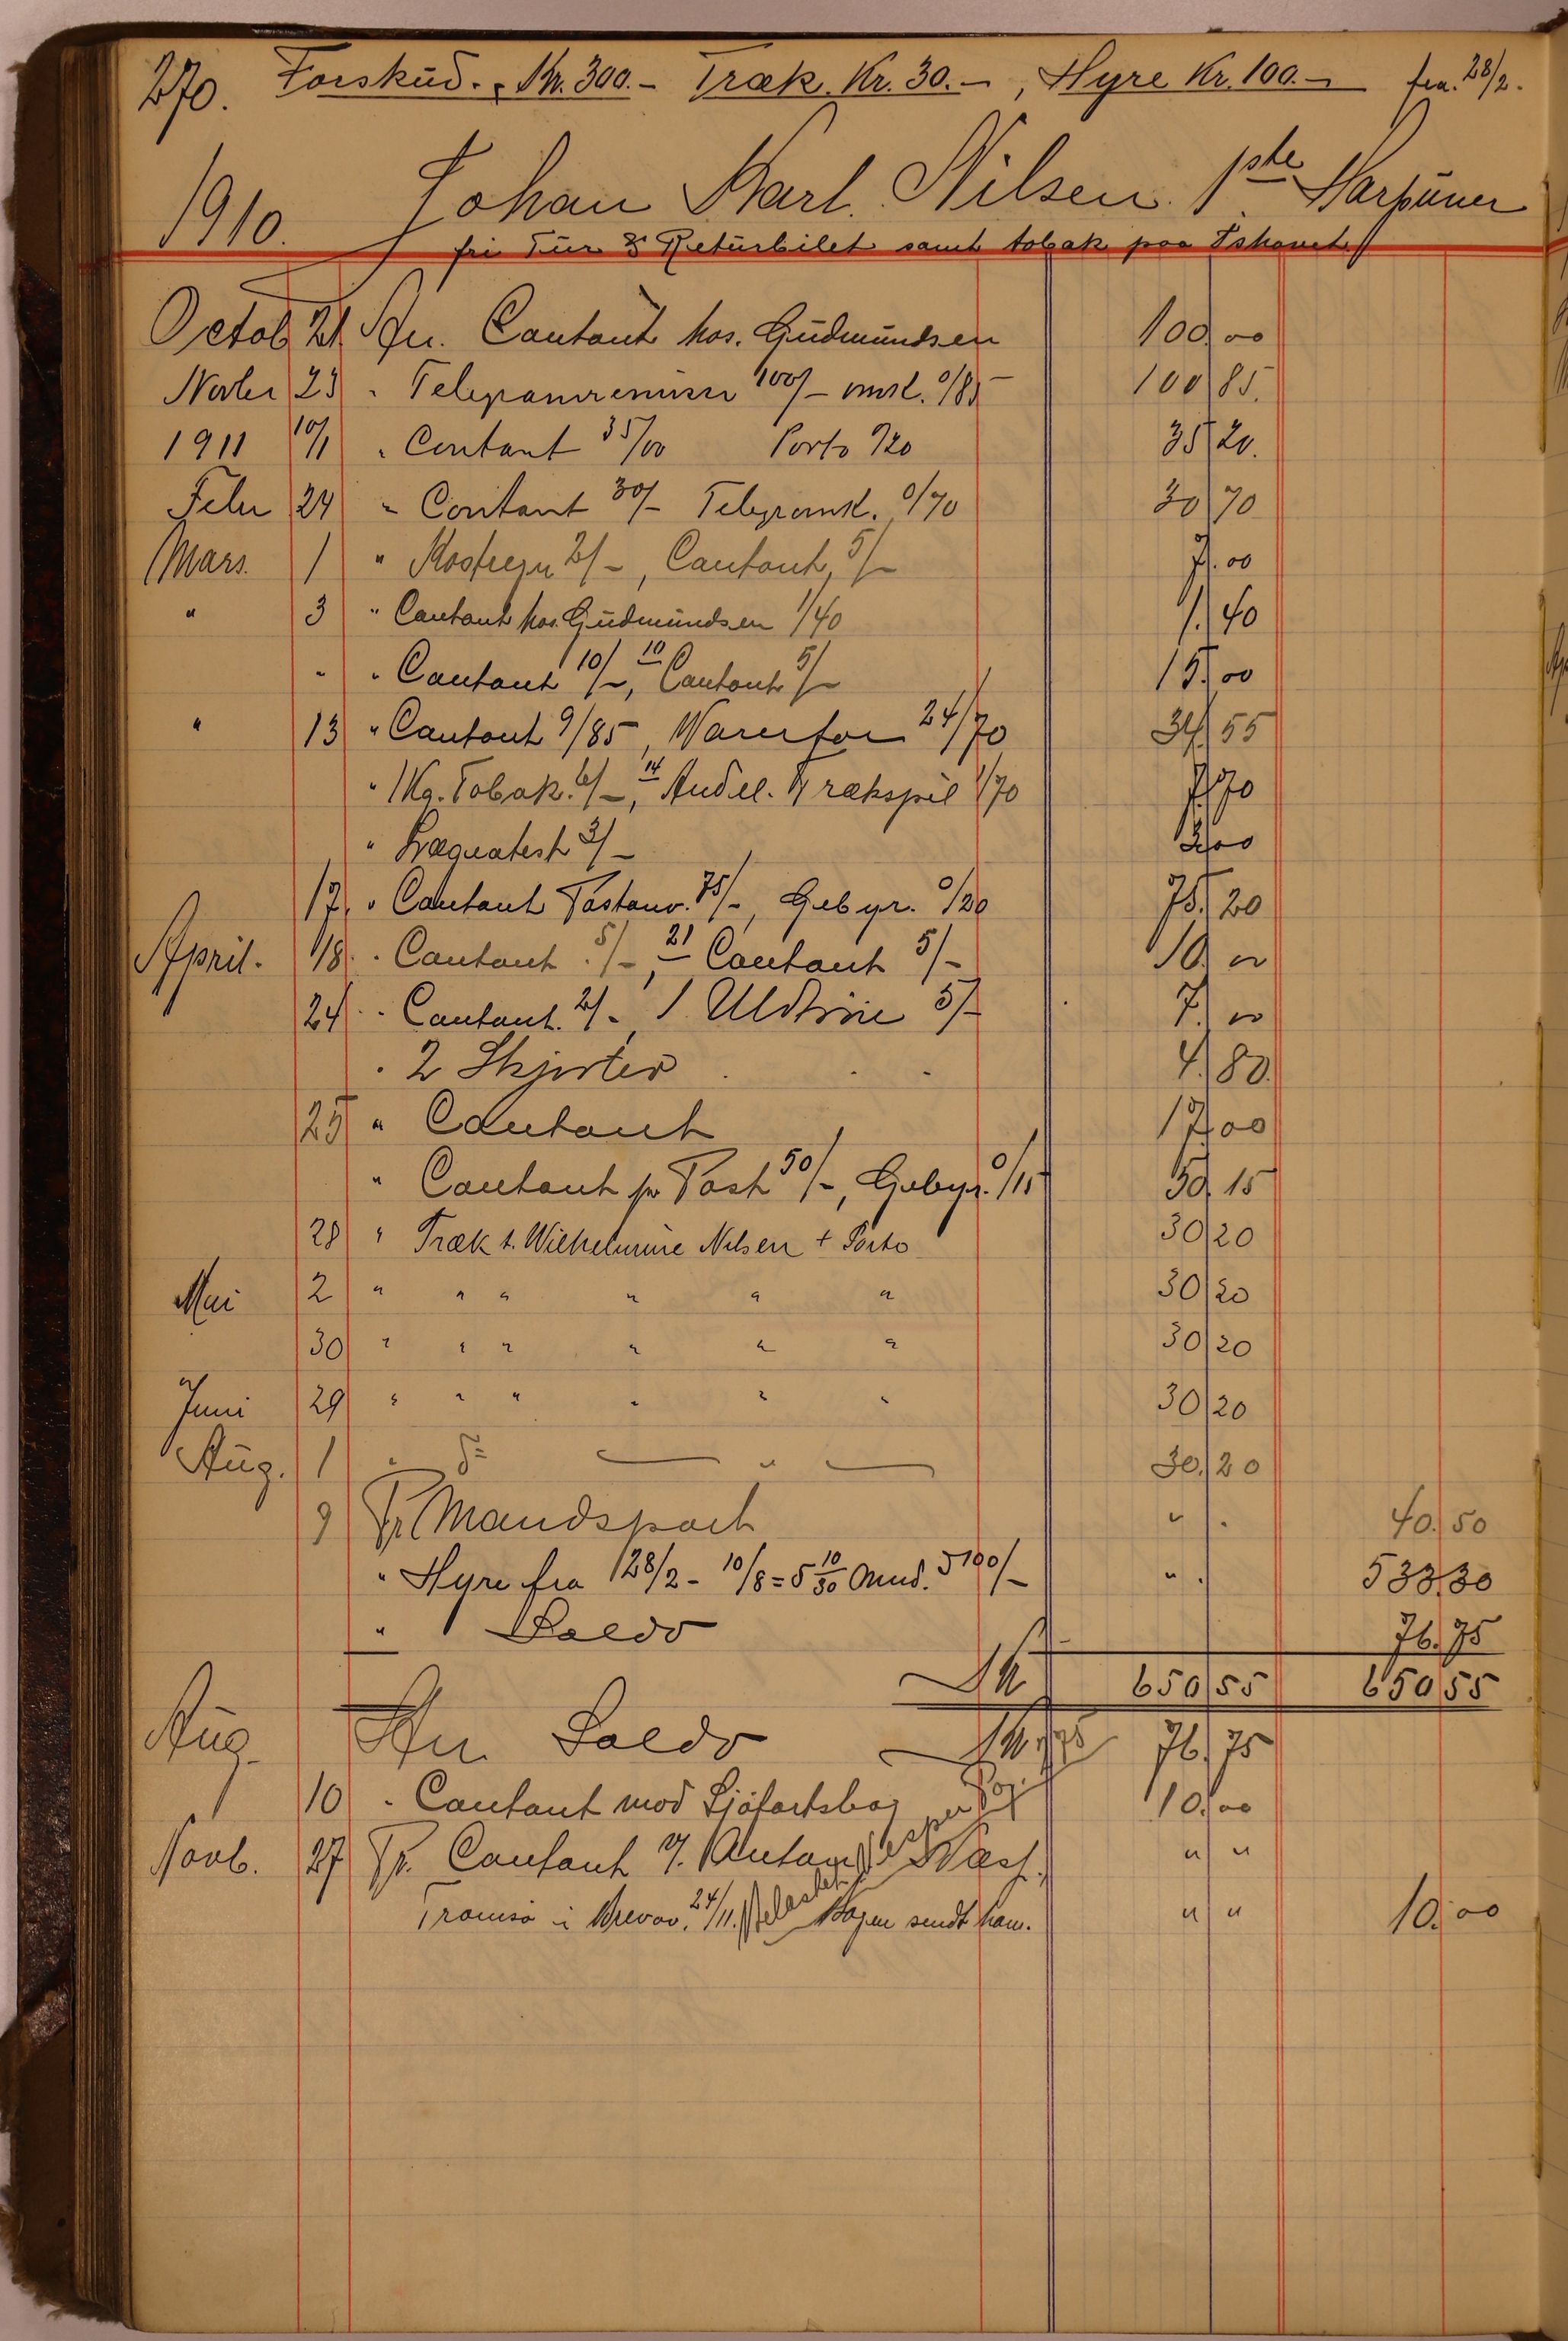 270. Forskud. Kr. 300.- Træk. Kr. 30.-, Hyre Kr. 100.- fra. 28/2.
1910. Johan Karl. Nilsen. 1ste Harpuner
fri Tur & Returbilet samt tobak paa Ishavet
Octob 21 An. Contant hos. Gudmundsen 100.00
Novbr 23 " Telegramremisse 100/- omk. 0/85 100 85.
1911 10/1 " Contant 35/00 Porto 0/20 35 20.
Febr 24 " Contant 30/- Telegromk. 0/70 30 70
Mars. 1 " 2/-, Contant, 5/- 7.00
" 3 " Contant hos. Gudmundsen 1/40 1.40
" " Contant 10/-, 10 Contant 5/- 15.00
" 13 " Contant 9/85, Varer for 24/70 34.55
" 1 Kg. Tobak. 6/-, 14 Andel. Trækspil 1/70 7.70
" Lægeatest 3/- 3.00
17. " Contant Postanv. 75/-, Gebyr. 0/20 75.20
April. 18. " Contant. 5/-, 21 Contant 5/- 10.00
24 " Contant. 2/-, 1 Uldtröie 5/- 7.00
" 2 Skjorter 4.80.
25 " Contant 17.00
" Contant pr Post 50/-, Gebyr. 0/15 50.15
28 " Træk t. Wilhelmine Nilsen + Porto 30 20
Mai 2 " " " " " " 30 20
30 " " " " " " 30 20
Juni 29 " " " " " " 30 20
Aug. 1 " do — " — 30.20
9 Pr. Mandspart " . 40.50
" Hyre fra 28/2 - 10/8 = 5 10/30 Mnd. á 100/- " . 533.30
" Saldo 76.75
Kr 650 55 650 55
Aug. An Saldo Kr. 76.75
10 " Contant mod Sjöfartsbog 10.00
Novb. 27 Pr. Contant f. Anton Jespersen Næss, " "
Tromsö i Brevov. 24/11. Bogen sendt ham. " " 10.00